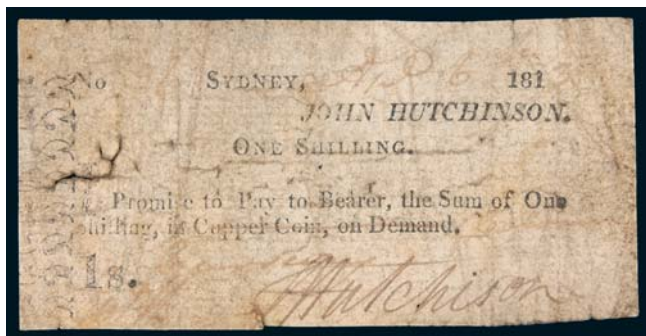 No SYDNEY, 181
JOHN HUTCHINSON.
ONE SHILLING.
Promise to Pay to Bearer, the Sum of One
Shilling, in Copper Coin, on Demand.
1s.
J Hutchison